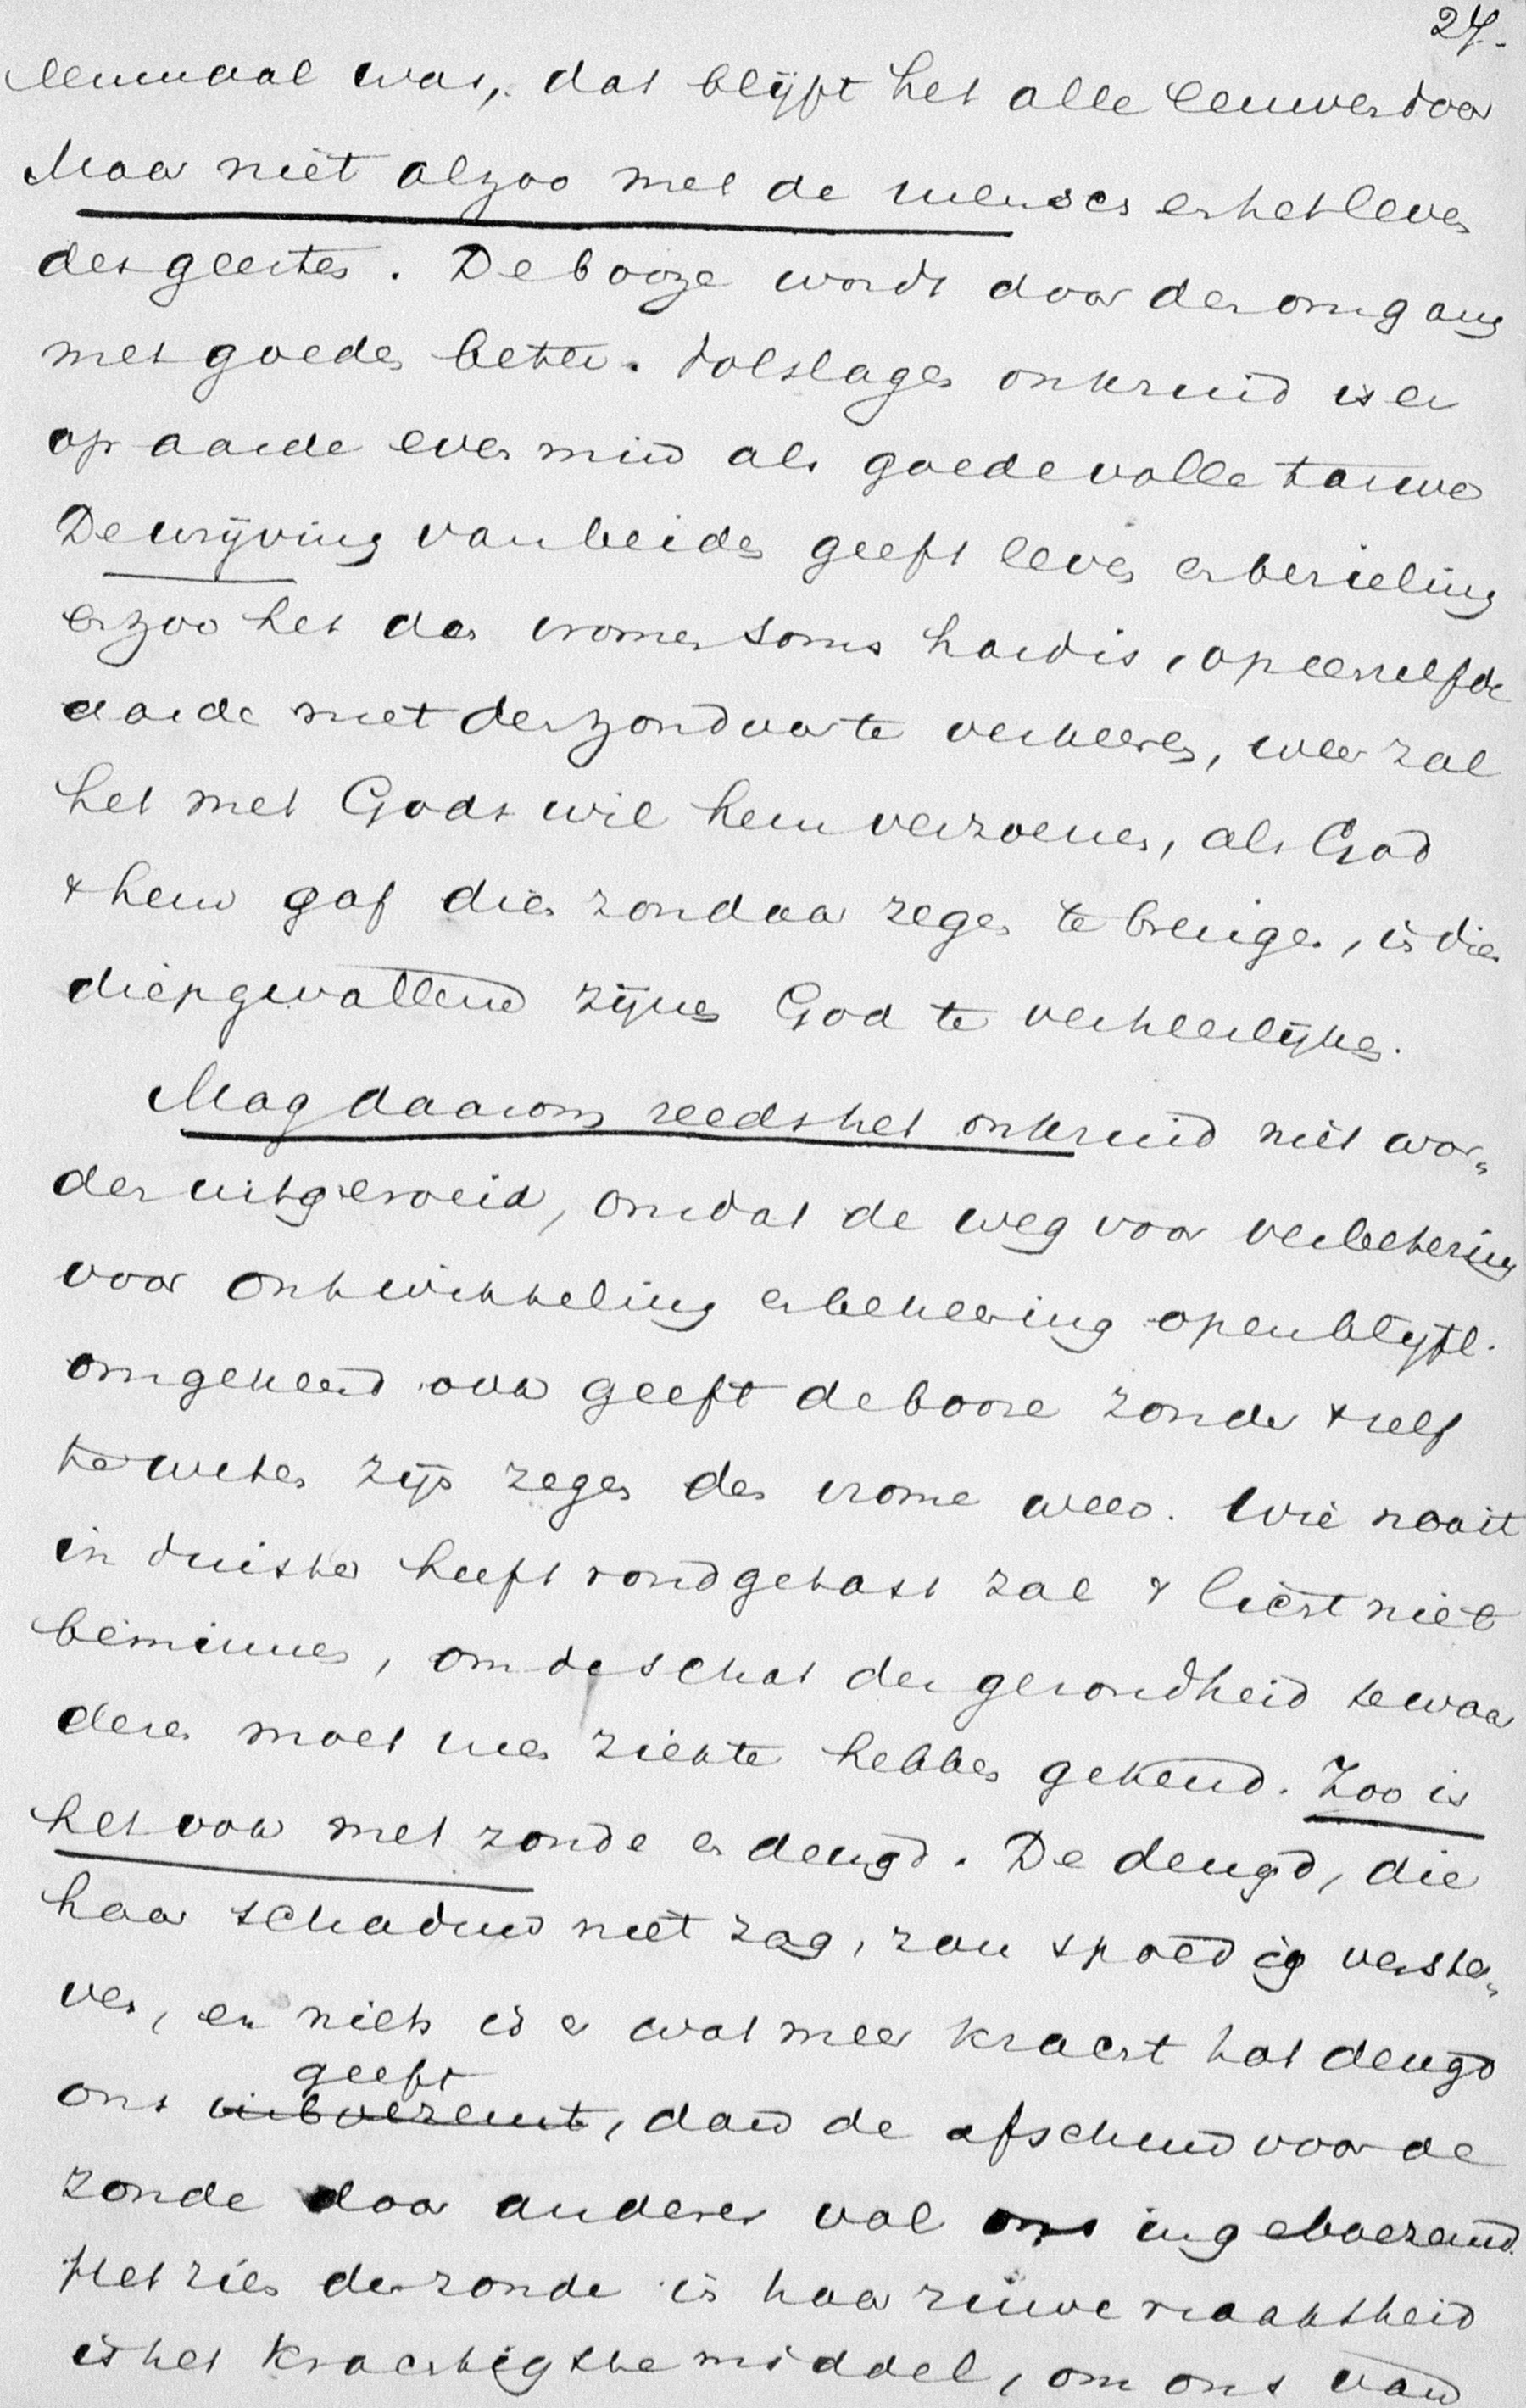 27.
eenmaal was, dat blijft het alle eeuwen door
Maar niet alzoo met de mensch en het leven
des geestes. De booze wordt door den omgang
met goeden beter. Volslagen onkruid is er
op aarde even min als goede volle tarwe
De wrijving van beiden geeft leven en bezieling
en zoo het den vromen soms hard is, op eenzelfde
aarde met den zondaar te verkeeren, weer zal
het met Gods wil hem verzoenen, als God
't hem gaf dien zondaar zegen te brengen, is dien
diepgevallene zijnen God te verheerlijken.
Mag daarom reeds het onkruid niet wor-
den uitgeroeid, omdat de weg voor verbetering
voor ontwikkeling en bekeering open blijft.
omgekeerd ook geeft de booze zonder 't zelf
te weten zijn zegen den vrome weer. Wie nooit
in duister heeft rondgetast zal 't licht niet
beminnen, om de schat der gezondheid te waar
deren moet men ziekte hebben gekend. Zoo is
het ook met zonde en deugd. De deugd, die
haar schaduw niet zag, zou spoedig verster-
ven, en niets is er wat meer kracht tot deugd
geeft
ons inboezemt, dan de afschuw voor de
zonde door anderer val ons ingeboezemd.
Het zien der zonde in haar ruwe naaktheid
is het krachtigste middel, om ons van